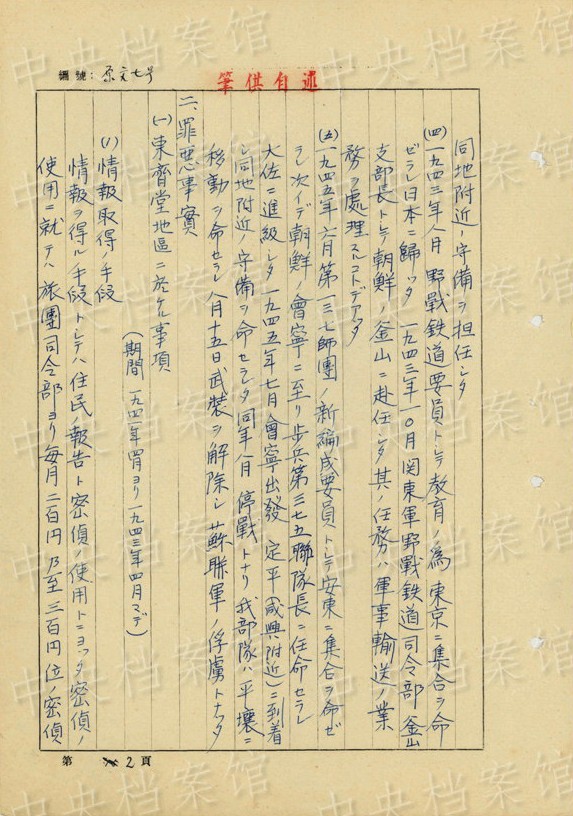 編號：原文七号
筆供自述
同地附近ノ守備ヲ担任シタ
(四)一九四三年八月 野戰鉄道要員トシテ教育ノ為東京ニ集合ヲ命
ゼラレ日本ニ歸ッタ 一九四三年一〇月関東軍野戰鉄道司令部釜山
支部長トシテ朝鮮ノ釜山ニ赴任シタ其ノ任務ハ軍事輸送ノ業
務ヲ處理スルコトデアッタ
(五)一九四五年六月第一三七師團ノ新編成要員トシテ安東ニ集合ヲ命ゼ
ラレ次イデ朝鮮ノ會寧ニ至リ歩兵第三七五聯隊長ニ任命セラレ
大佐ニ進級シタ一九四五年七月會寧出發 定平(咸興附近)ニ到着
シ同地附近ノ守備ヲ命セラレタ同年八月 停戰トナリ我部隊ハ平壤ニ
移動ヲ命セラレ八月十五日武装ヲ解除シ蘇聯軍ノ俘虜トナッタ
二、罪惡事實
(一)東齊堂地區ニ於ケル事項
(期間 一九四一年四月ヨリ一九四三年四月マデ)
(1)情報取得ノ手段
情報ヲ得ル手段トシテハ住民ノ報告ト密偵ノ使用トニヨッタ密偵ノ
使用ニ就テハ旅團司令部ヨリ毎月二百円乃至三百円位ノ密偵
第 2 頁
中央档案馆